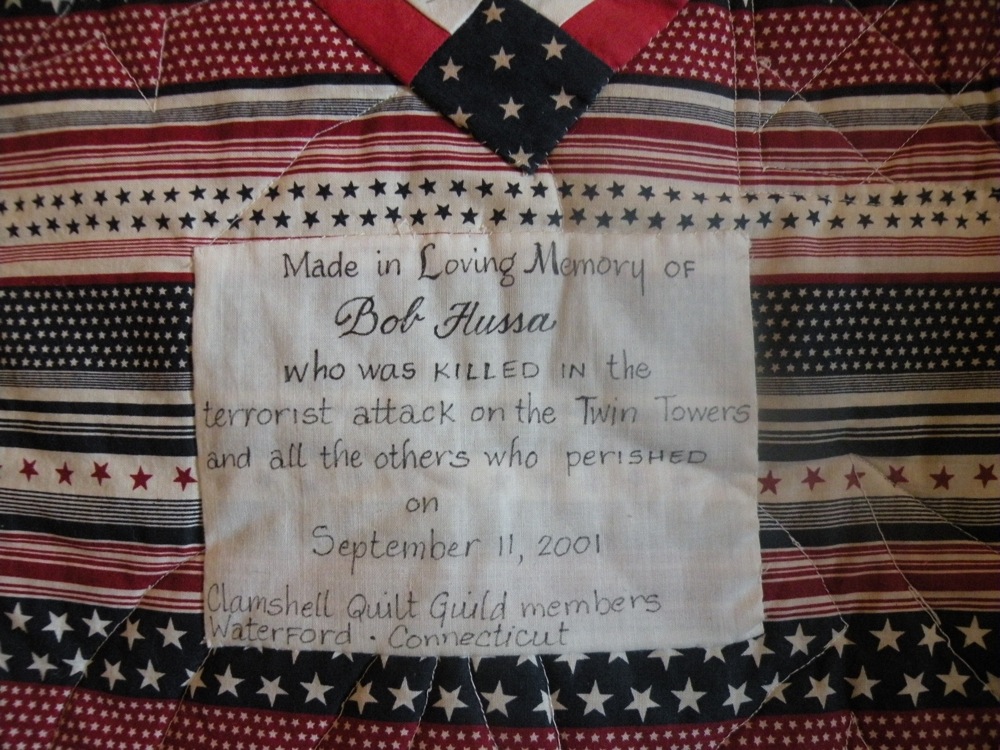 Made in Loving Memory of
Bob Hussa
who was KILLED IN the
terrorist attack on the Twin Towers
and all the others who perISHED
on
September 11, 2001
Clamshell Quilt Guild members
Waterford · Connecticut